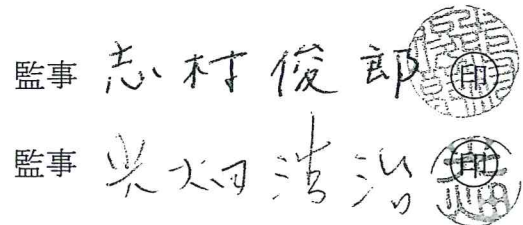 監事 志村俊郎 ㊞
監事 光畑浩治 ㊞